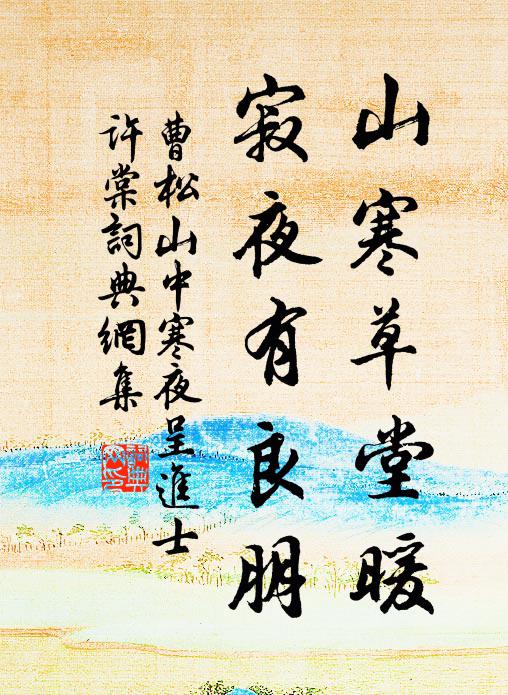 山寒草堂暖
寂夜有良朋
曹松山中寒夜呈進士
許棠詞典網集